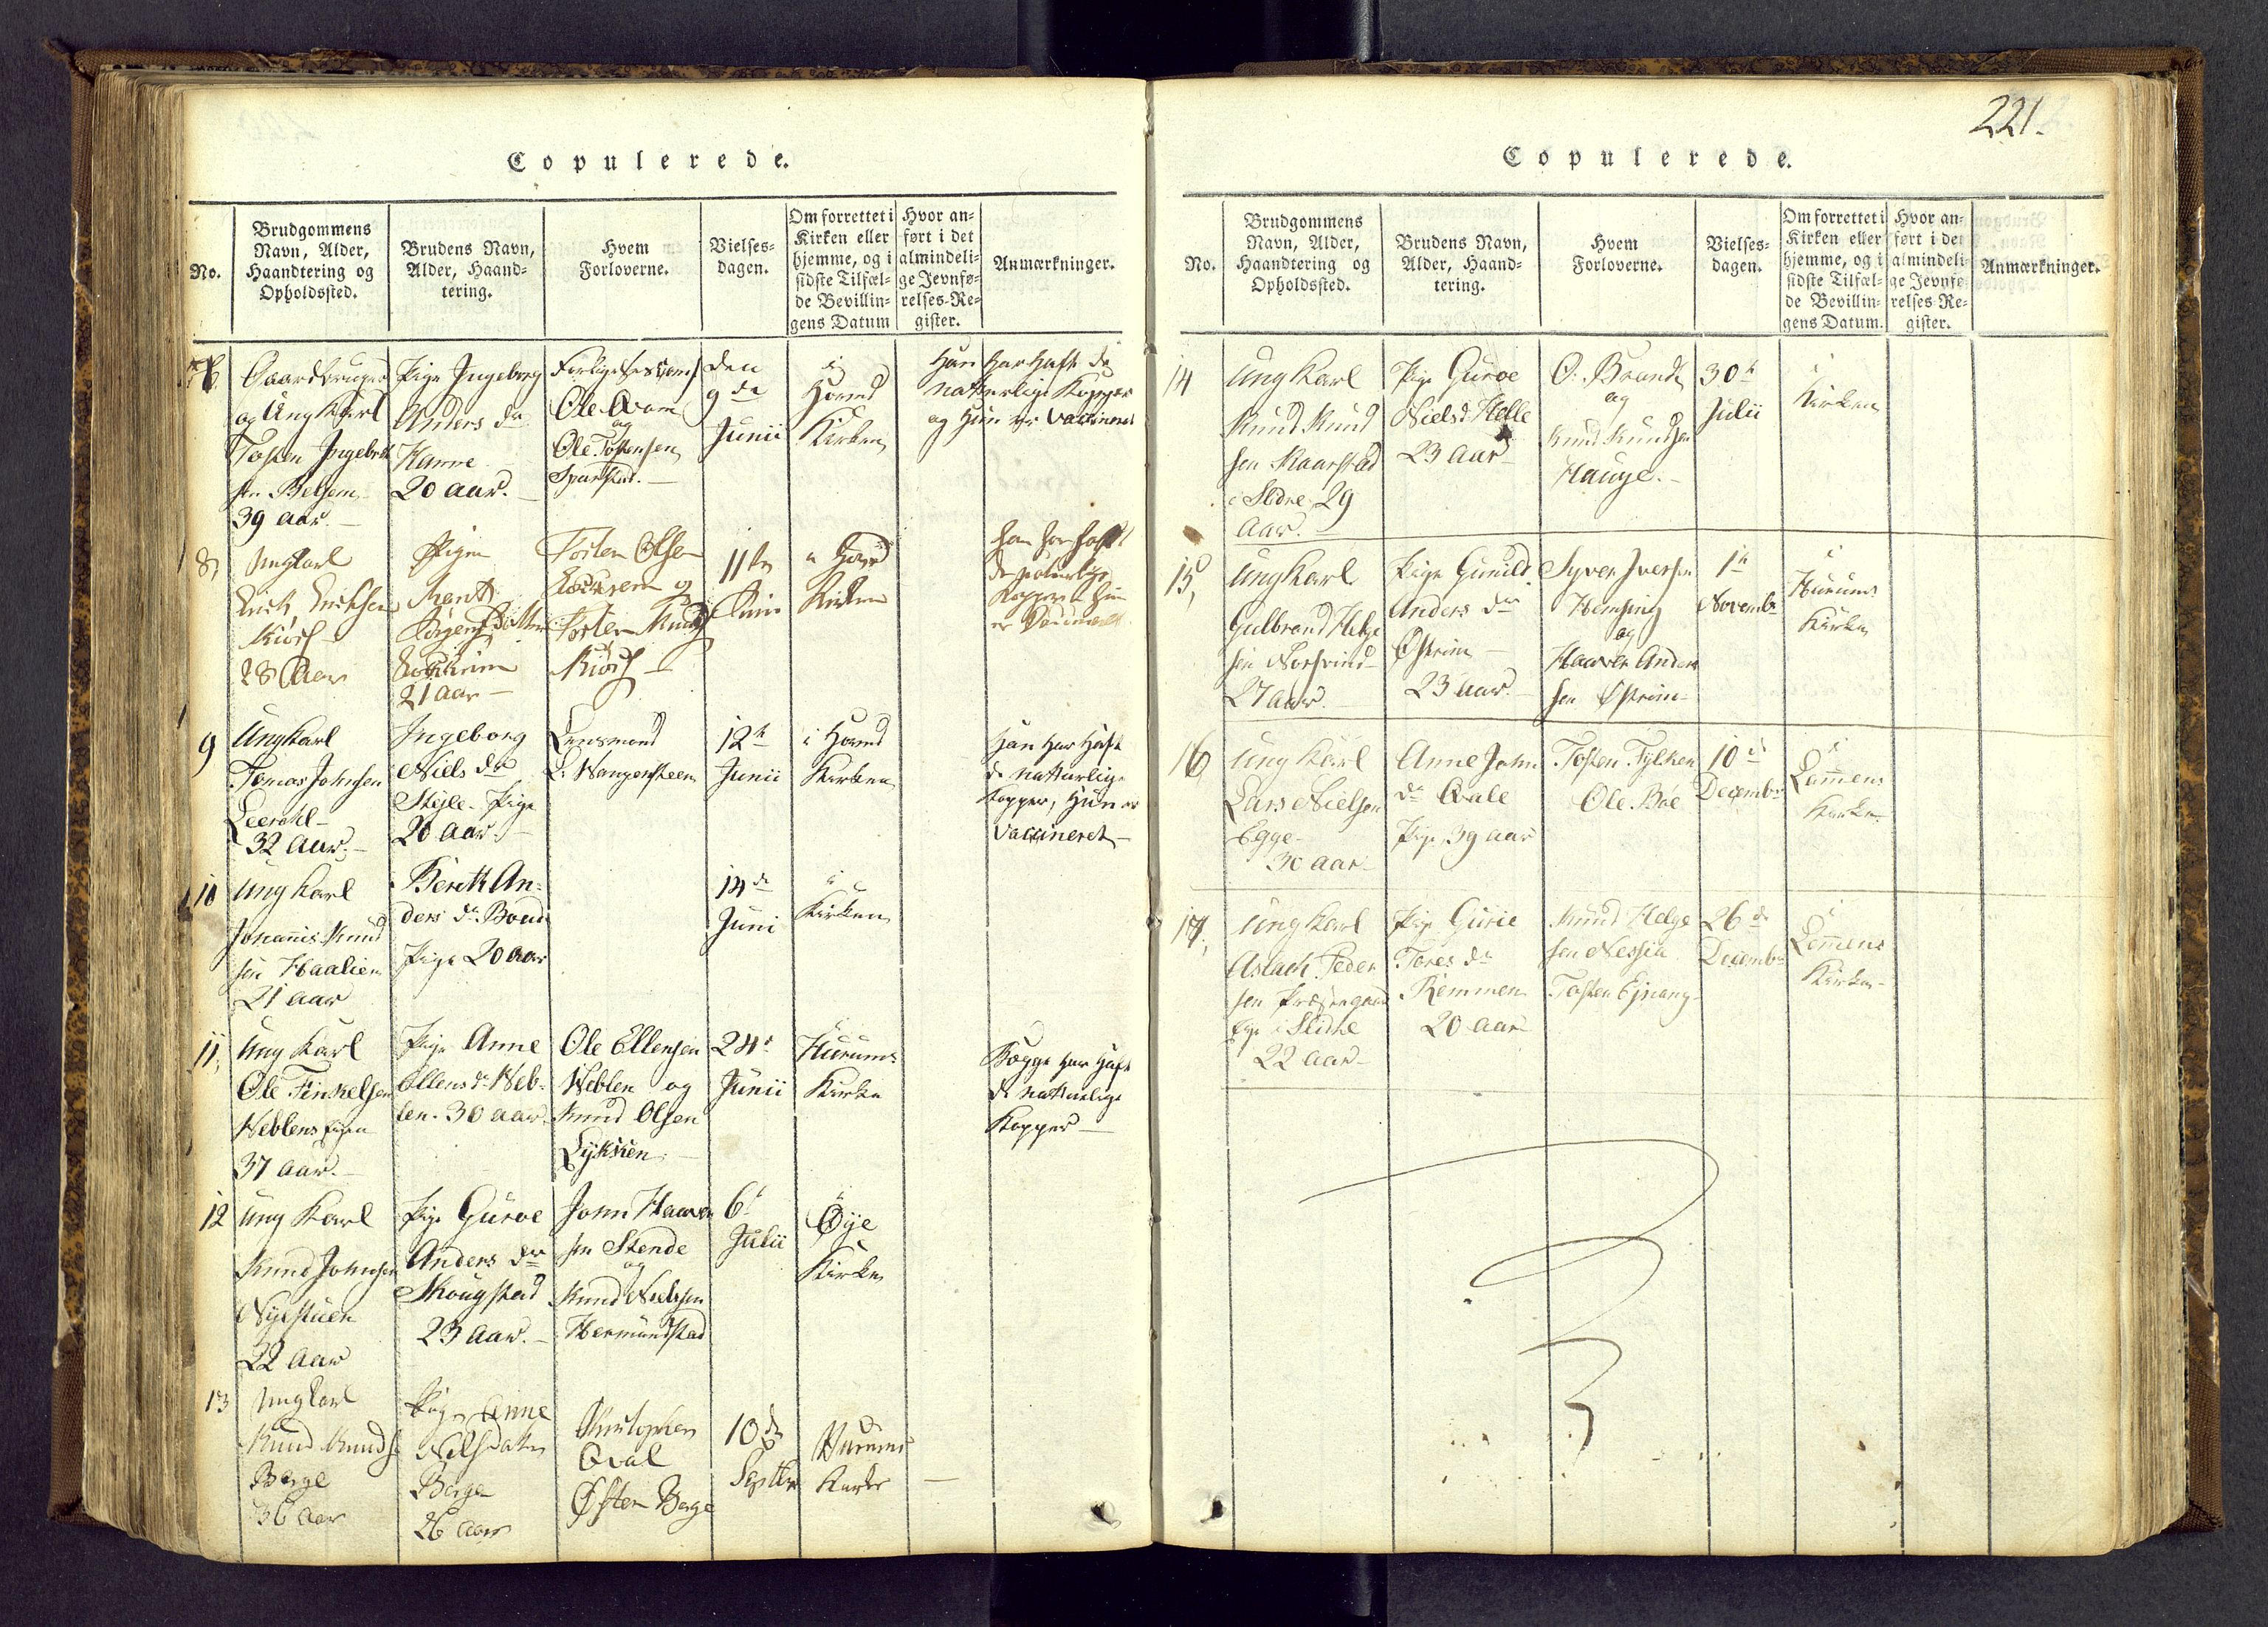 221.
Copulerede.
No.
Brudgommens
Navn, Alder,
Haandtering og
Opholdssted.
Brudens Navn,
Alder, Haand-
tering.
Hvem
Forloverne.
Vielses-
dagen.
Om forrettet i
Kirken eller
hjemme, og i
sidste Tilfæl-
de Bevillin-
gens Datum
Hvor an-
ført i det
almindeli-
ge Jevnfø-
relses-Re-
gister.
Anmærkninger.
Gaardbruger
og Ungkarl
Tosten Ingebret
sen
39 aar.
Pige Ingeborg
Anders dr
20 aar.
Ole Qvam
og
Ole Tostensen
den
9de
Junii
i
Kirken
Han har haft de
naturlige Kopper
og Hun er Vaccineret
8,
Ungkarl
Erich Erichsen
28 Aar
Pigen
Marit
21 aar
Tosten Olsen
og
Tosten Knuds
11te
Junii
i
Kirken
han har haft
de naturlige
Kopper, Hun
er Vaccineret
9
Ungkarl
Tomas Johnsen
Leerohl
32 Aar.
Ingeborg
Niels dr
Pige
20 aar.
Lensmand
L. Wangensteen
12te
Junii
i
Kirken
Han har haft
de naturlige
Kopper, Hun er
Vaccineret
10
Ung Karl
Johannis Knud
sen Haalien
21 aar
Berit An-
ders dr
Pige 20 aar
14de
Juni
i
Kirken
11,
Ung Karl
Ole Finkelsen
37 aar.
Pige Anne
Ellens dr Heb-
len. 30 aar
Ole Ellensen
Heblen og
Knud Olsen
24de
Junii
i
Hurums
Kirke
Begge har haft
de naturlige
Kopper
12
Ung Karl
Knud Johnsen
Nystuen
22 aar
Pige Guroe
Anders dr
Skougstad
23 aar.
John Haaver
sen Stende
og
Knud Nielsen
Hermundstad
6te
Julii
i
Øye
Kirke
13
Ungkarl
Knud Knuds
Berge
36 aar
Pige Anne
Nilsdatter
Berge
26 aar
Christopher
Qval
Østen Berge
10de
Septbr
Hurums
Kirke
Copulerede.
No.
Brudgommens
Navn, Alder,
Haandtering og
Opholdssted.
Brudens Navn,
Alder, Haand-
tering.
Hvem
Forloverne.
Vielses-
dagen.
Om forrettet i
Kirken eller
hjemme, og i
sidste Tilfæl-
de Bevillin-
gens Datum.
Hvor an-
ført i det
almindeli-
ge Jevnfø-
relses Re-
gister.
Anmærkninger.
14
Ung Karl
Knud Knud
sen Kaarstad
i Slidre 29
aar.
Pige Guroe
Niels dr Helle
23 aar
O. Brandt
og
Knud Knudsen
Hauge.
30te
Julii
i
Kirken
15,
Ungkarl
Gulbrand Helge
sen
27 aar.
Pige Gunild
Anders dr
Østrem
23 aar.
Syver Iversen
Hemsing
og
Haaven Anders
sen Østrem
1te
Novembr
i
Hurums
Kirke
16,
Ung Karl
Lars Nielsen
Egge
30 aar
Anne John
dr Qvale
Pige 39 aar
Tosten Fylken
Ole Böe
10de
Decembr
i
Lomens
Kirke
17,
Ung Karl
Aslach Peder
sen
i Slidre
22 aar
Pige Gurie
Tores dr
Remmen
20 aar
Knud Helge
sen
Tosten
26de
Decembr
i
Lomens
Kirke